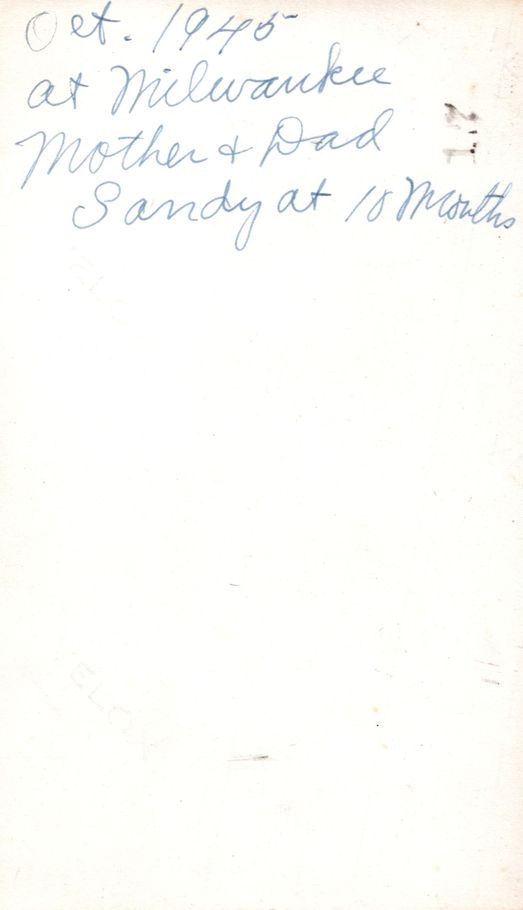 Oct. 1945
at Milwaukee
Mother + Dad
Sandy at 18 Months